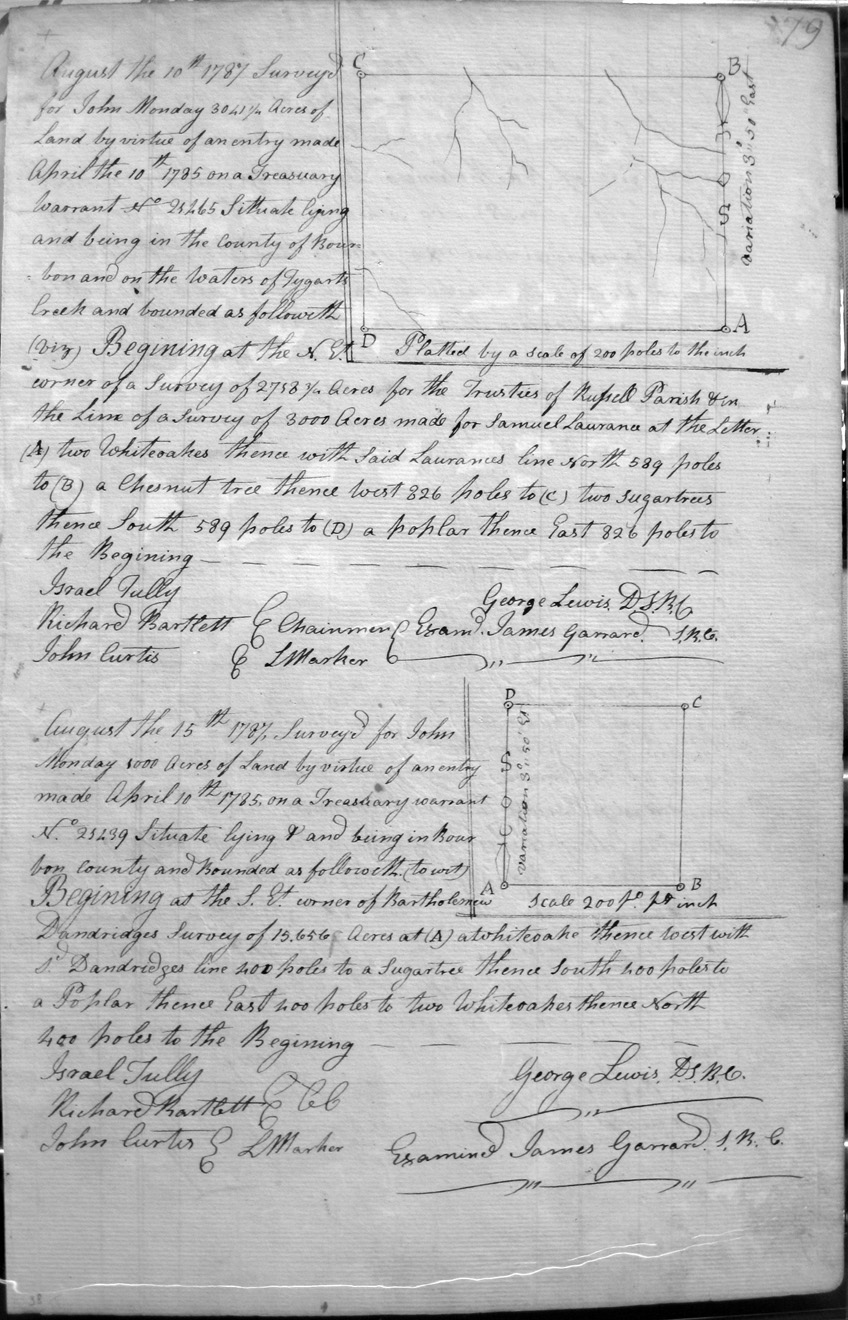 79
August the 10th 1787 Survey'd
for John Monday 3041½ Acres of
Land by virtue of an entry made
April the 10th 1785 on a Treasuary
warrant No 21465 Situate lying
and being in the County of Bour-
-bon and on the Waters of Tygarts
Creek and bounded as followith
(Viz) Begining at the N. Et.
corner of a Survey of 2758¾ Acres for the Trusties of Russell Parish & in
the Line of a Survey of 3000 Acres made for Samuel Laurance at the Letter
(A) two Whiteoakes thence with Said Laurances line North 589 poles
to (B) a Chesnut tree thence West 826 poles to (C) two Sugartrees
thence South 589 poles to (D) a poplar thence East 826 poles to
the Begining
C
B
D
A
Variation 3° 50' East
Platted by a Scale of 200 poles to the inch
Israel Tully
Richard Bartlett Chainmen
John Curtis LMarker
George Lewis. D.S.B.C
Examd. James Garrard. S.B.C.
August the 15th 1787 Survey'd for John
Monday 1000 Acres of Land by virtue of an entry
made April 10th 1785. on a Treasuary warrant
N.o 21439 Situate lying & and being in Bour
bon County and Bounded as followeth (to wit)
Begining at the S. Et. corner of Bartholemew
Dandridges Survey of 15.656 Acres at (A) a whiteoake thence West with
sd Dandredges line 400 poles to a Sugartree thence South 400 poles to
a Poplar thence East 400 poles to two Whiteoakes thence North
400 poles to the Begining
D
C
A
B
Variation 3°. 50' Et
Scale 200 ps. pr inch
Israel Tully
Richard Bartlett C C
John Curtis LMarker
George Lewis. DS.B.C.
Examined James Garrard. S. B. C.